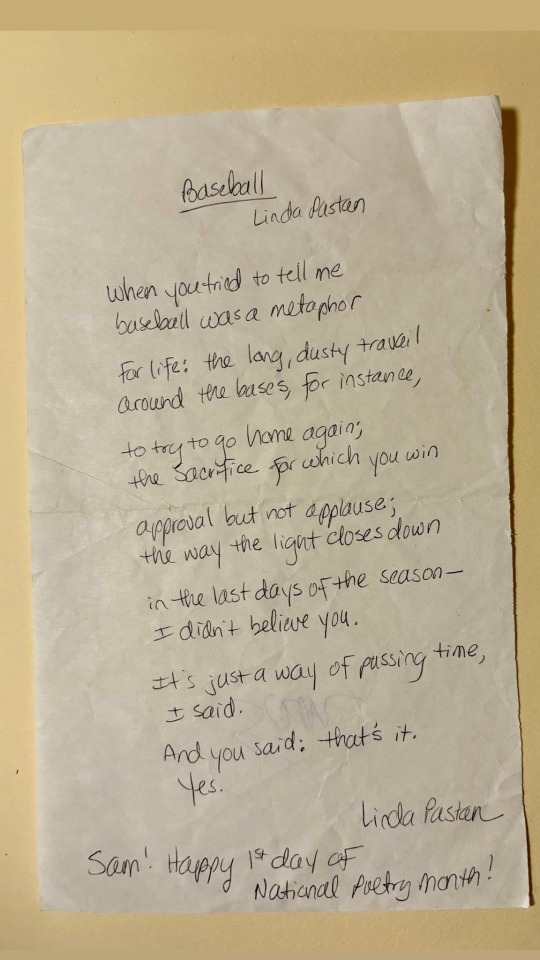 Baseball
Linda Pastan
When you tried to tell me
baseball was a metaphor
for life: the long, dusty travail
around the bases, for instance,
to try to go home again;
the Sacrifice for which you win
approval but not applause;
the way the light closes down
in the last days of the season—
I didn't believe you.
It's just a way of passing time,
I said.
And you said: that's it.
Yes.
Linda Pastan
Sam! Happy 1st day of
National Poetry Month!